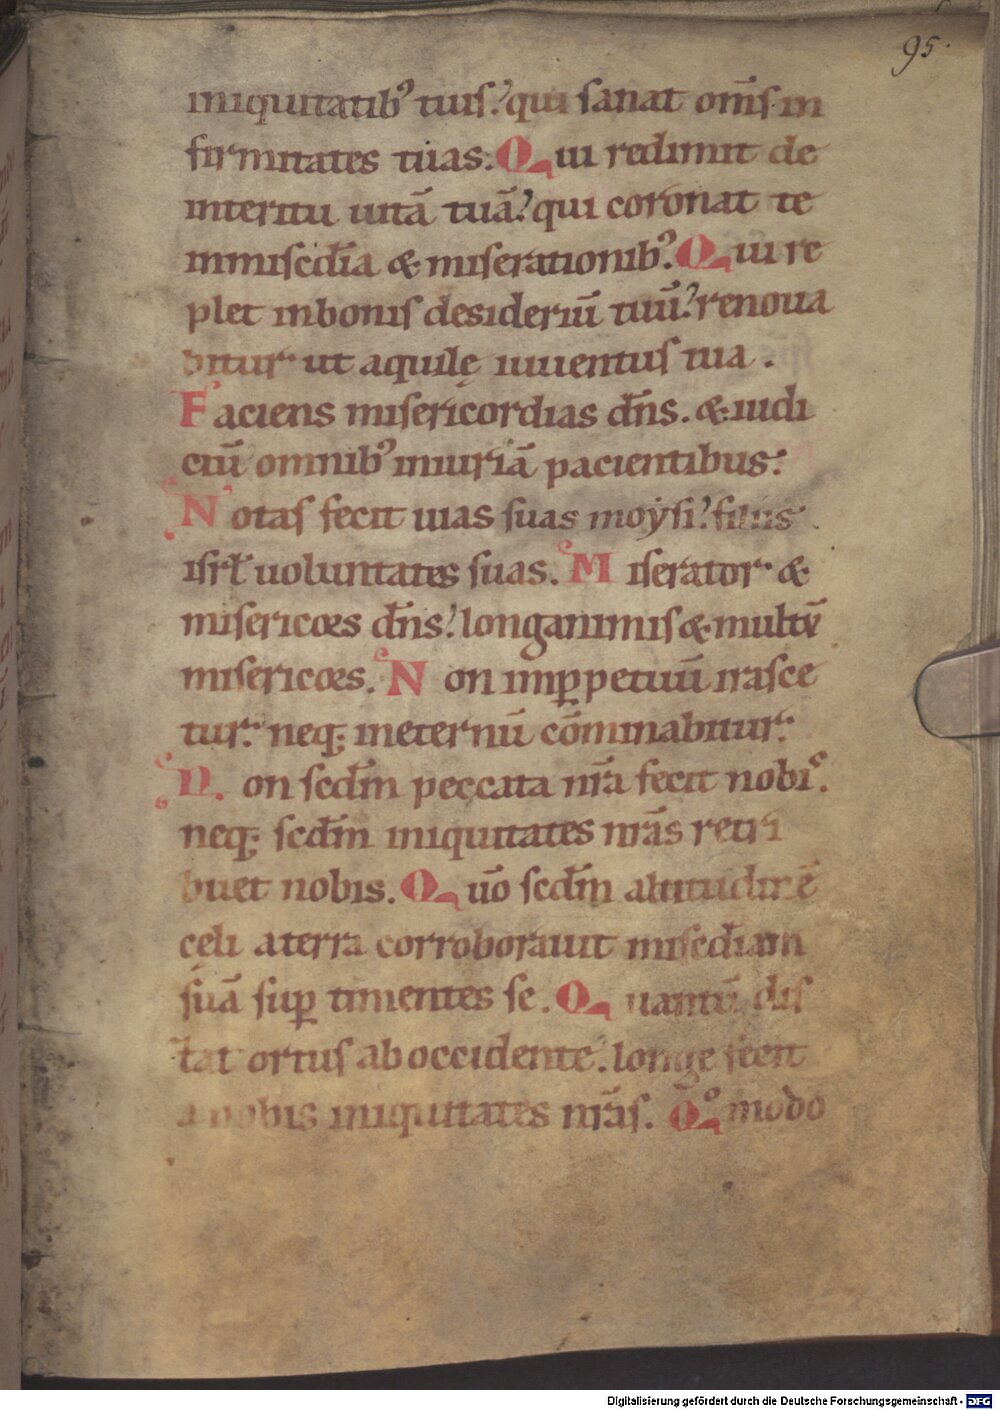 95.
iniquitatib⁹ tuis. qui sanat om̄s in
firmitates tuas. Qui redimit de
interitu uitā tuā. qui coronat te
inmisc̄dia & miserationib⁹. Qui re
plet inbonis desideriū tuū. renoua
bitur ut aquilę iuuentus tua.
Faciens misericordias dn̄s. & iudi
ciū omnib⁹ iniuriā pacientibus.
Notas fecit uias suas moẏsi. filiis
isrl̄ uoluntates suas. Miserator &
misericors dn̄s. longanimis & multū
misericors. Non inꝑpetuū irasce
tur. neq; ineternū cōminabitur.
Non scdm̄ peccata nr̄a fecit nobis.
neq; scdm̄ iniquitates nr̄as retri
buet nobis. Qūo scdm̄ altitudinē
cęli aterra corroborauit misc̄diam
suā suꝑ timentes se. Quantū dis
tat ortus aboccidente. longe fecit
a nobis iniquitates nr̄as. Qͦmodo
Digitalisierung gefördert durch die Deutsche Forschungsgemeinschaft - DFG